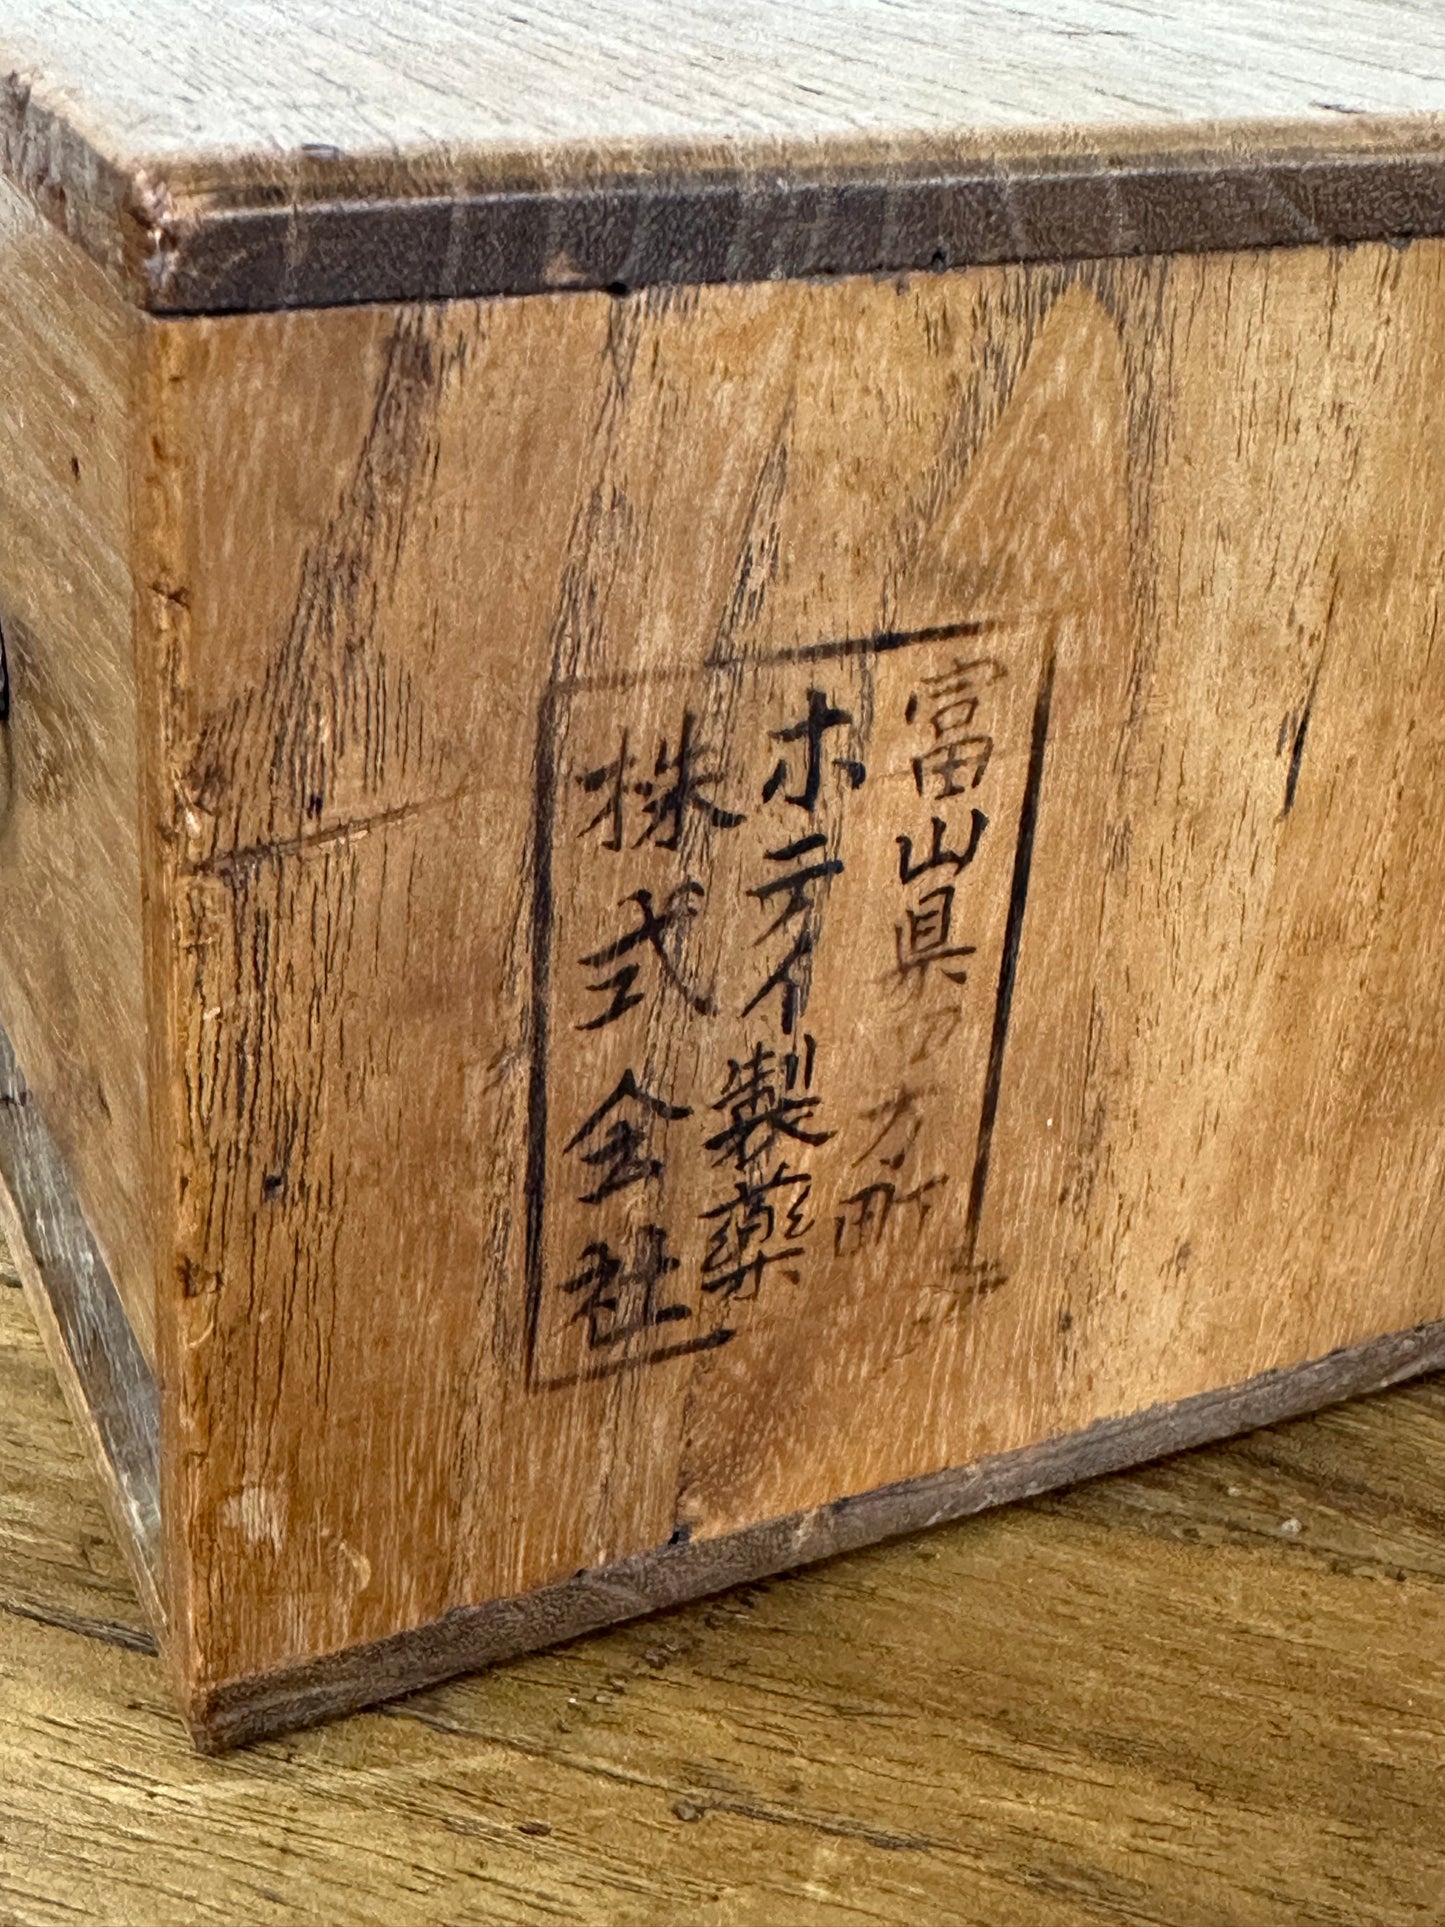 富山県四方町
ホテイ製薬
株式会社